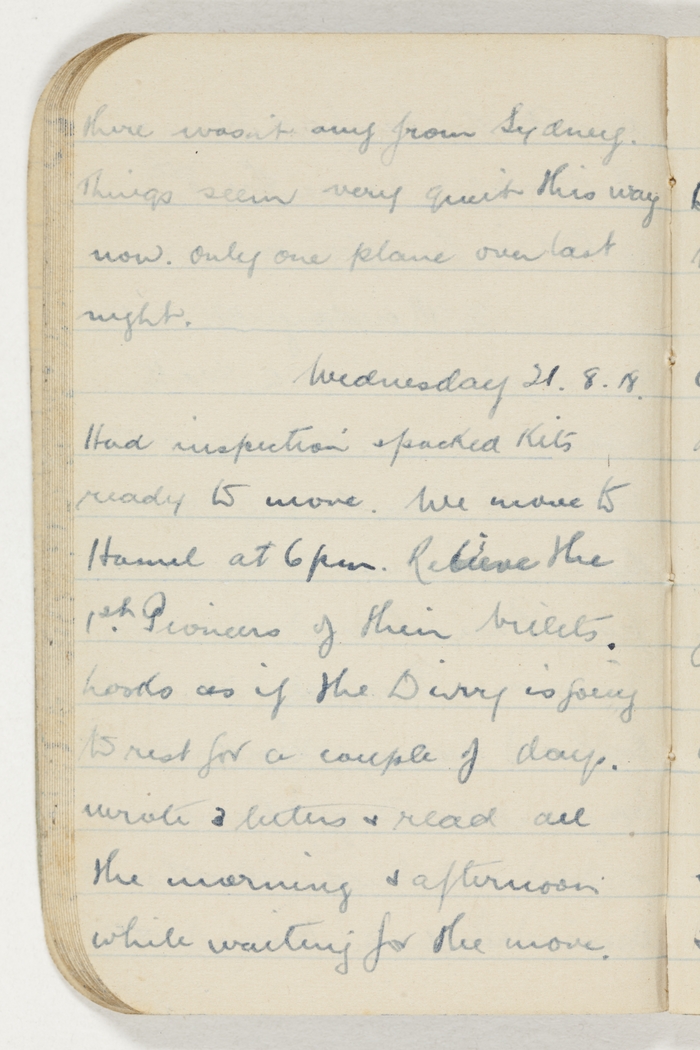 there wasn't any from Sydney.
Things seem very quiet this way
now. Only one plane over last
night.
Wednesday 21. 8. 18.
Had inspection & packed Kits
ready to move. We move to
Hamel at 6 pm. Relieve the
1st. Pioneers of their billets.
Looks as if the Divvy is going
to rest for a couple of days.
wrote 3 letters & read all
the morning & afternoon
while waiting for the move.